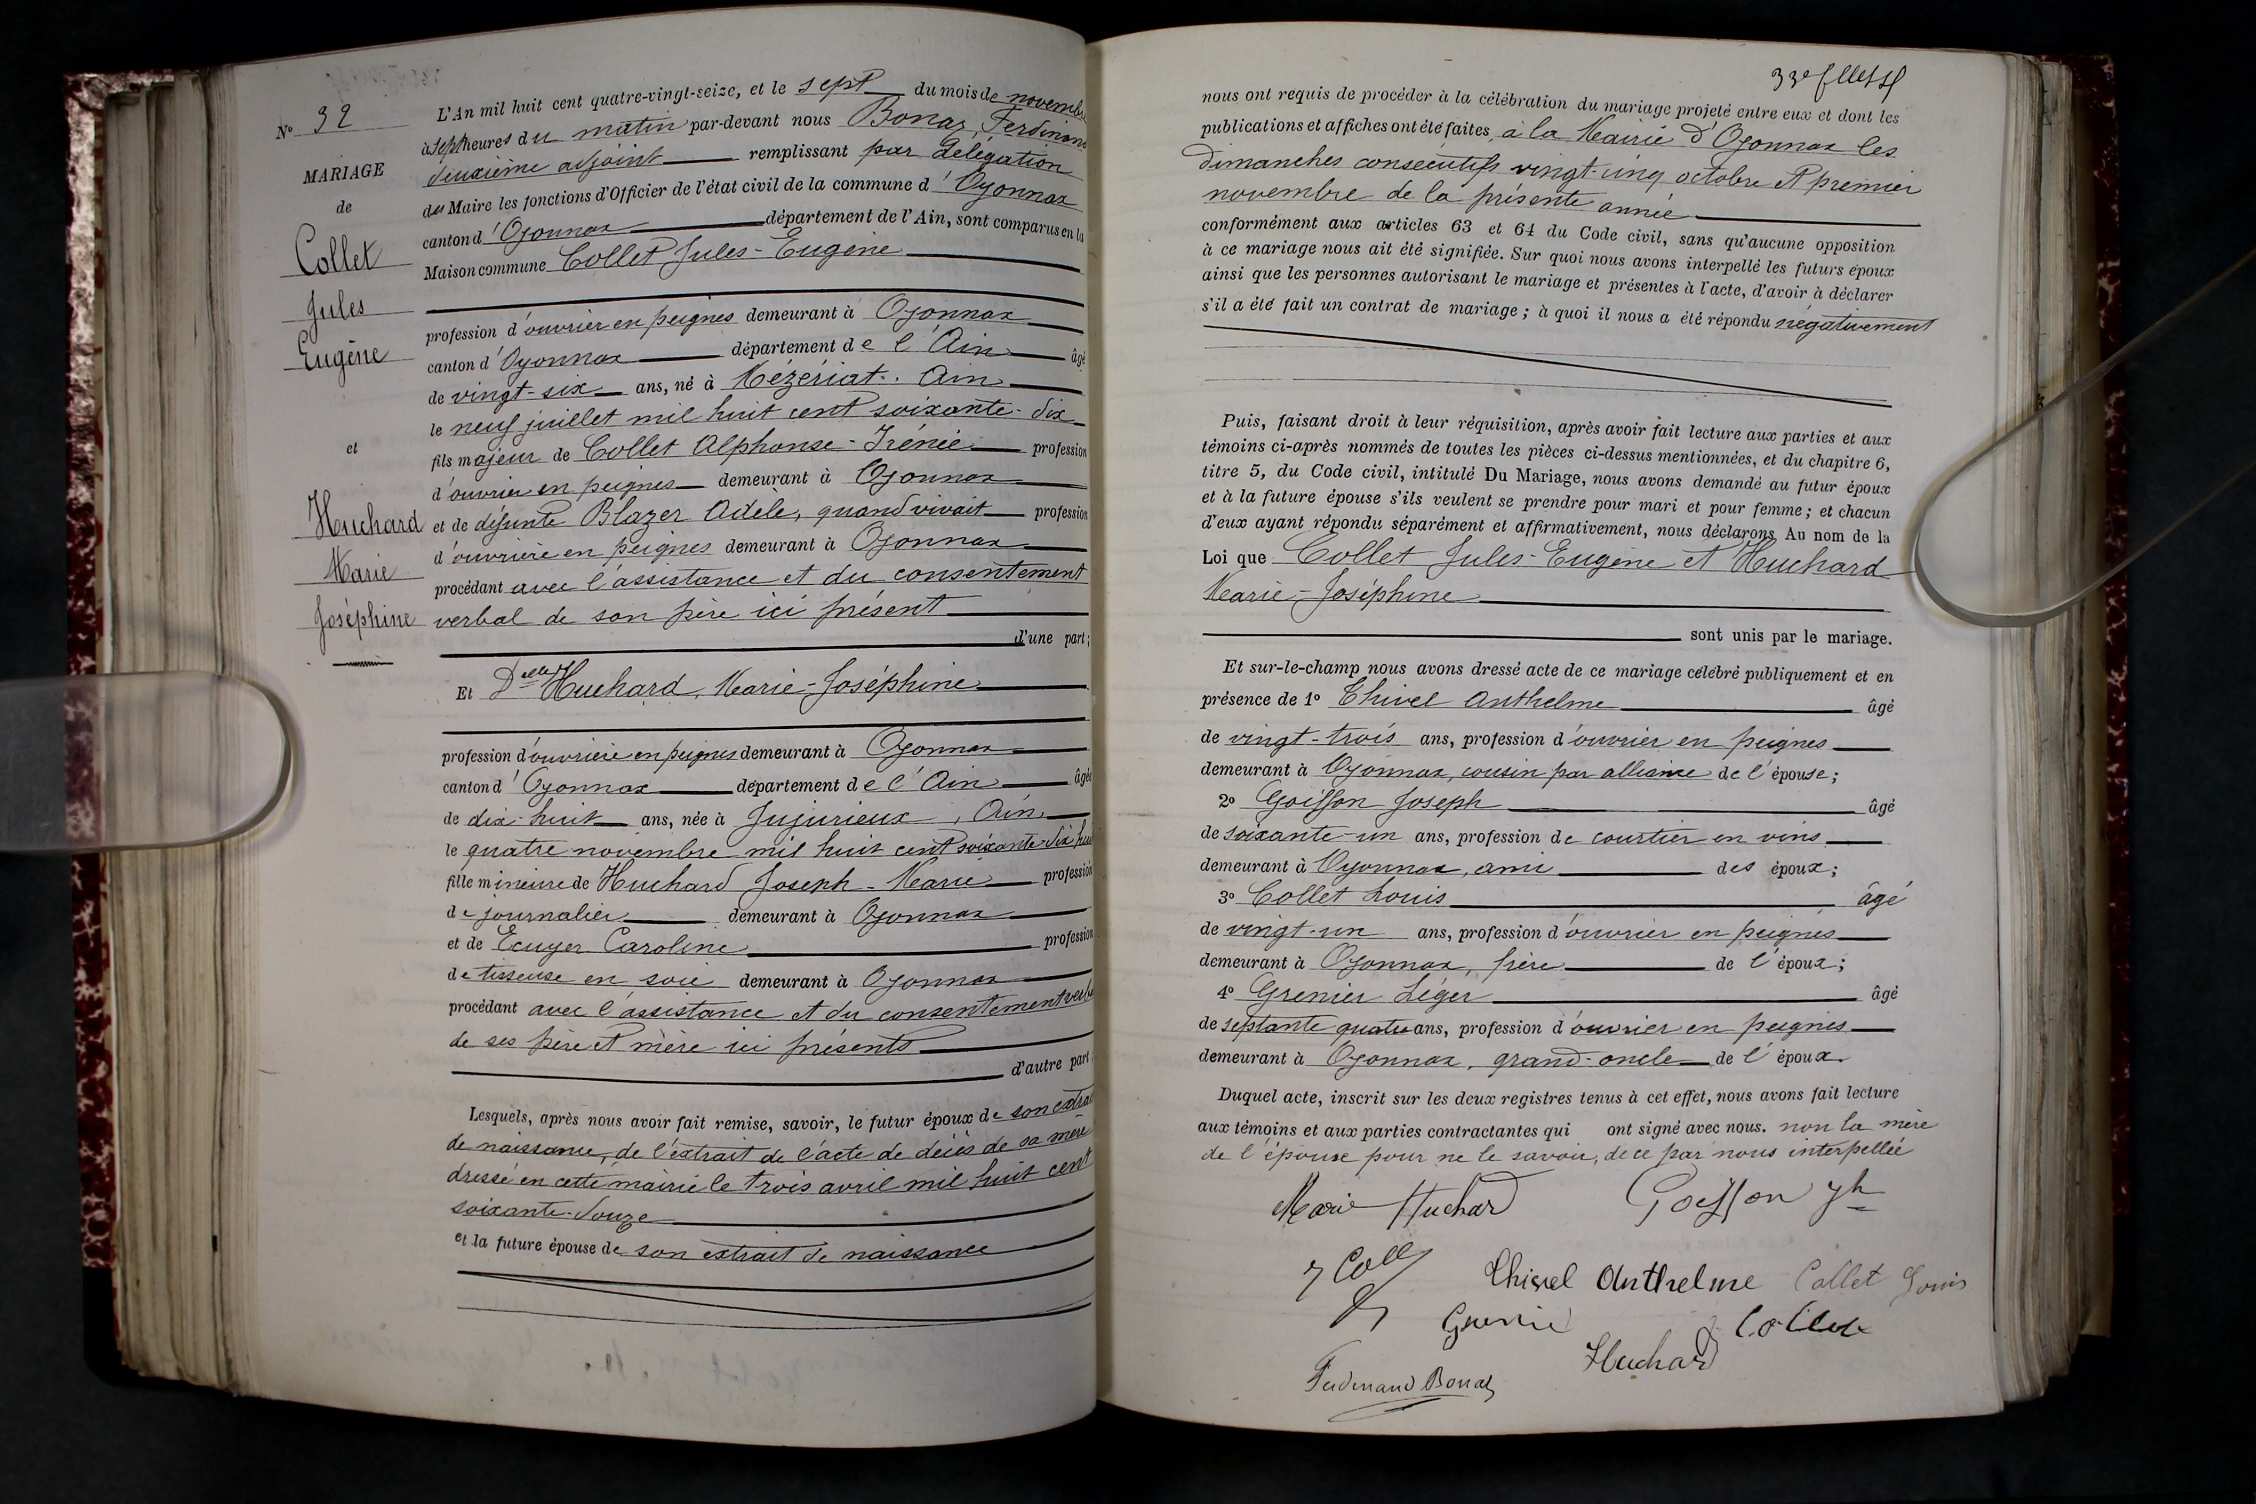 N° 32
MARIAGE
de
Collet
Jules
Eugène
et
Huchard
Marie
Joséphine
L'An mil huit cent quatre-vingt-seize, et le sept du mois de novembre
à sept heures du matin par-devant nous Bonaz, Ferdinand
deuxième adjoint remplissant par délégation
du Maire les fonctions d'Officier de l'état civil de la commune d'Oyonnax
canton d'Oyonnax département de l'Ain, sont comparus en la
Maison commune Collet Jules-Eugène
profession d'ouvrier en peignes demeurant à Oyonnax
canton d'Oyonnax département de l'Ain âgé
de vingt-six ans, né à Mezeriat. Ain
le neuf juillet mil huit cent soixante-dix
fils majeur de Collet Alphonse-Irénée profession
d'ouvrier en peignes demeurant à Oyonnax
et de défunte Blazer Adèle, quand vivait profession
d'ouvrière en peignes demeurant à Oyonnax
procédant avec l'assistance et du consentement
verbal de son père ici présent
d'une part;
Et Delle Huchard, Marie-Joséphine
profession d'ouvrière en peignes demeurant à Oyonnax
canton d'Oyonnax département de l'Ain âgée
de dix-huit ans, née à Jujurieux, Ain,
le quatre novembre mil huit cent soixante-dix huit
fille mineure de Huchard Joseph-Marie profession
de journalier demeurant à Oyonnax
et de Ecuyer Caroline profession
de tisseuse en soie demeurant à Oyonnax
procédant avec l'assistance et du consentement verbal
de ses père et mère ici présents
d'autre part
Lesquels, après nous avoir fait remise, savoir, le futur époux de son extrait
de naissance, de l'extrait de l'acte de décès de sa mère
dressé en cette mairie le trois avril mil huit cent
soixante-douze
et la future épouse de son extrait de naissance
33e fllet
nous ont requis de procéder à la célébration du mariage projeté entre eux et dont les
publications et affiches ont été faites à la Mairie d'Oyonnax les
dimanches consécutifs vingt-cinq octobre et premier
novembre de la présente année
conformément aux articles 63 et 64 du Code civil, sans qu'aucune opposition
à ce mariage nous ait été signifiée. Sur quoi nous avons interpellé les futurs époux
ainsi que les personnes autorisant le mariage et présentes à l'acte, d'avoir à déclarer
s'il a été fait un contrat de mariage; à quoi il nous a été répondu négativement
Puis, faisant droit à leur réquisition, après avoir fait lecture aux parties et aux
témoins ci-après nommés de toutes les pièces ci-dessus mentionnées, et du chapitre 6,
titre 5, du Code civil, intitulé Du Mariage, nous avons demandé au futur époux
et à la future épouse s'ils veulent se prendre pour mari et pour femme; et chacun
d'eux ayant répondu séparément et affirmativement, nous déclarons Au nom de la
Loi que Collet Jules-Eugène et Huchard
Marie-Joséphine
sont unis par le mariage.
Et sur-le-champ nous avons dressé acte de ce mariage célébré publiquement et en
présence de 1° Thivel Anthelme âgé
de vingt-trois ans, profession d'ouvrier en peignes
demeurant à Oyonnax, cousin par alliance de l'épouse;
2° Goiffon Joseph âgé
de soixante-un ans, profession de courtier en vins
demeurant à Oyonnax, ami des époux;
3° Collet Louis âgé
de vingt-un ans, profession d'ouvrier en peignes
demeurant à Oyonnax, frère de l'époux;
4° Grenier Léger âgé
de septante quatre ans, profession d'ouvrier en peignes
demeurant à Oyonnax, grand-oncle de l'époux.
Duquel acte, inscrit sur les deux registres tenus à cet effet, nous avons fait lecture
aux témoins et aux parties contractantes qui ont signé avec nous. non la mère
de l'épouse pour ne le savoir, de ce par nous interpellée
Marie Huchard Goiffon Jh
J Coll
Thivel Anthelme Collet Louis
Grenié Collet
Huchard
Ferdinand Bonaz